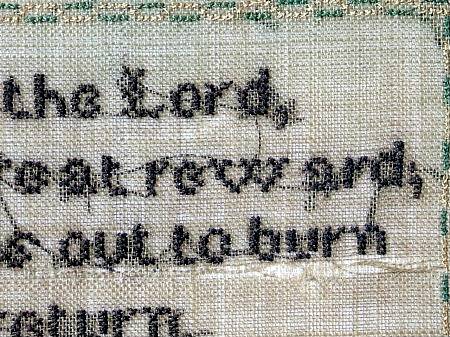 the Lord,
reat reward;
s out to burn
eturn.